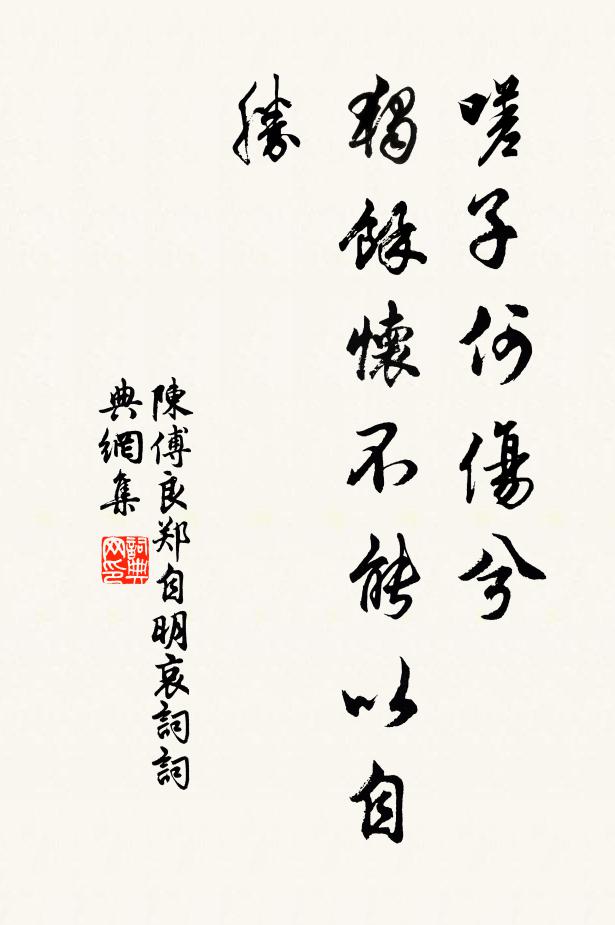 嗟子何傷兮
獨餘懷不能以自
勝
陳傅良郑自明哀詞詞
典網集
詞典
网印